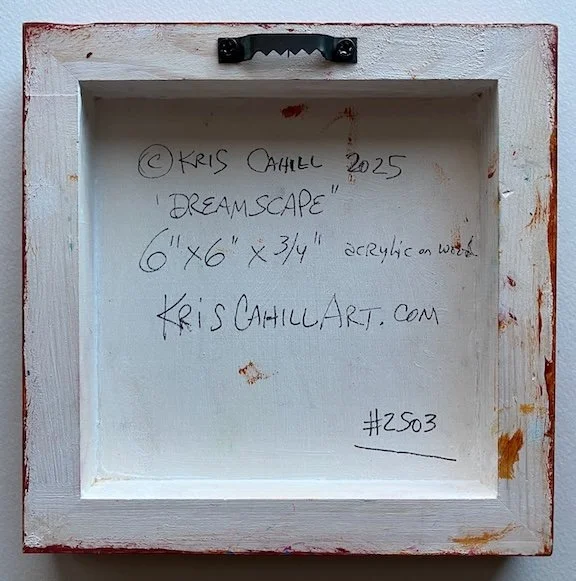 © KRIS CAHILL 2025
'DREAMSCAPE"
6" x 6" x 3/4" acrylic on wood
KRISCAHILLART.COM
#2503